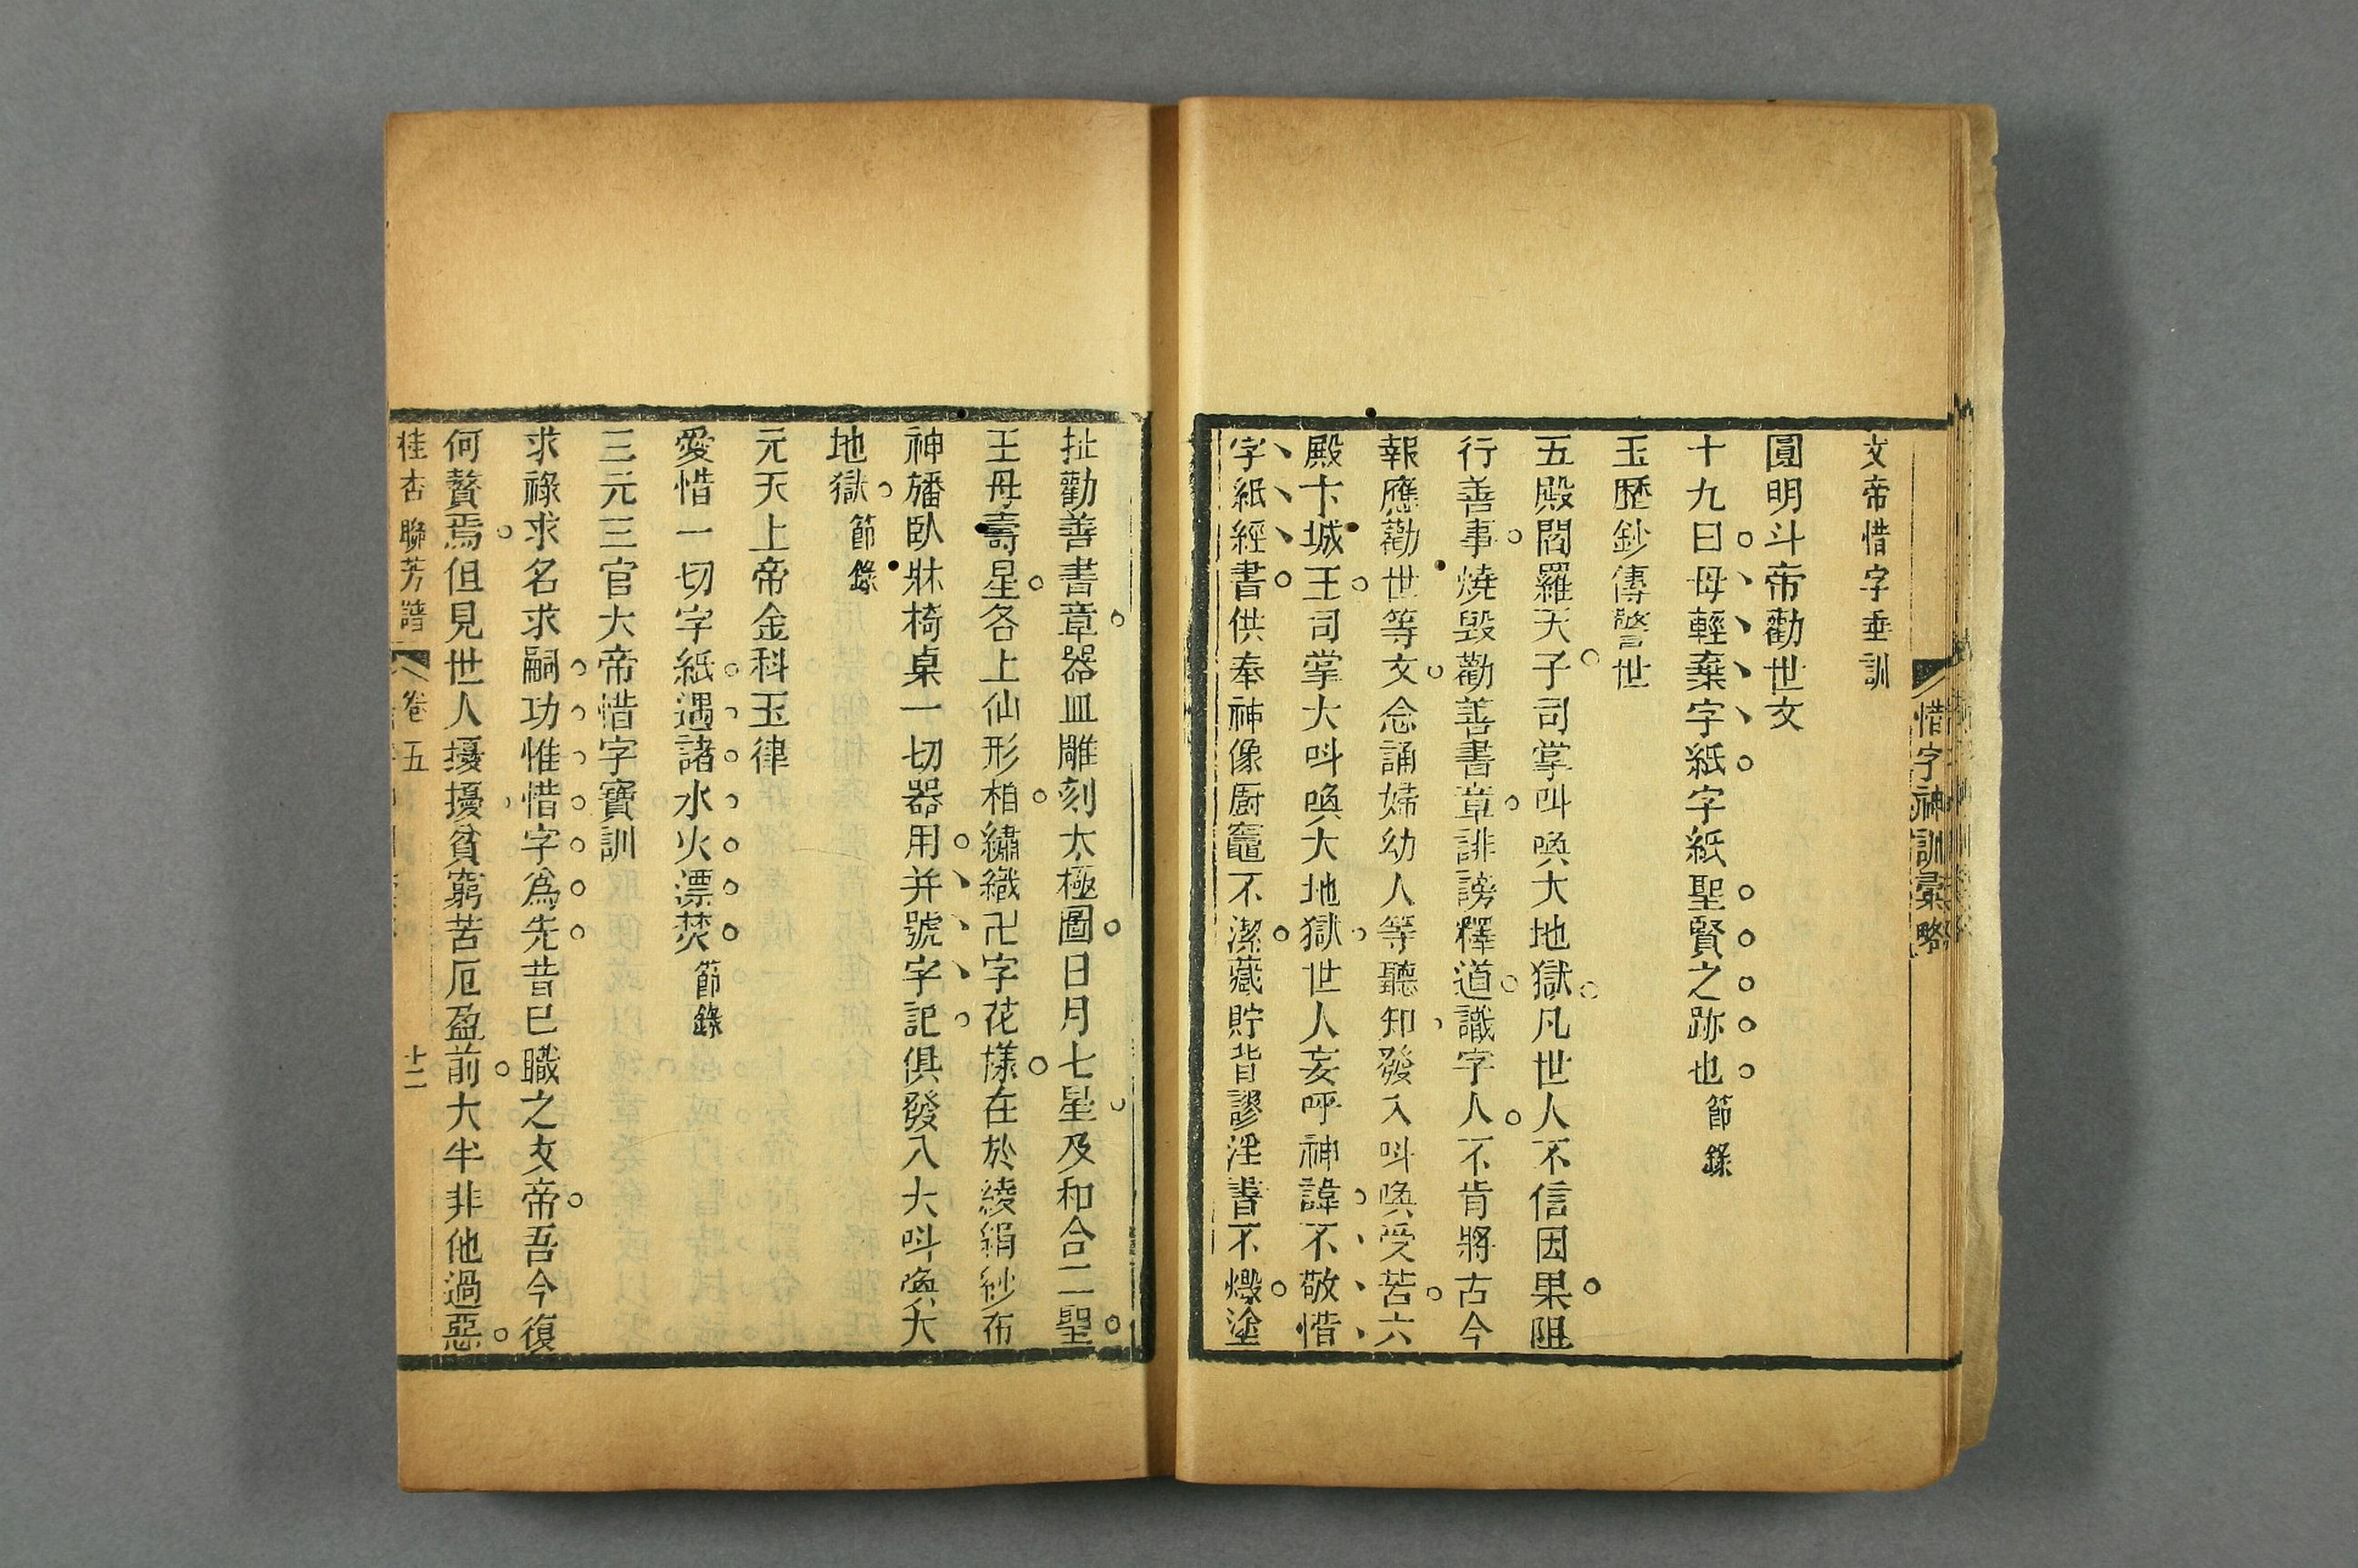 惜字神訓彙略
文帝惜字垂訓
圓明斗帝勸世文
十九曰毋輕棄字紙字紙聖賢之跡也節錄
玉歷鈔傳警世
五殿閻羅天子司掌叫喚大地獄凡世人不信因果阻
行善事燒毀勸善書章誹謗釋道識字人不肯將古今
報應勸世等文念誦婦幼人等聽知發入叫喚受苦六
殿卞城王司掌大叫喚大地獄世人妄呼神諱不敬惜
字紙經書供奉神像厨竈不潔藏貯背謬淫書不燬塗
扯勸善書章器皿雕刻太極圖日月七星及和合二聖
王母壽星各上仙形柏繡織卍字花樣在於綾絹紗布
神旛臥牀椅桌一切器用并號字記俱發入大叫喚大
地獄節錄
元天上帝金科玉律
愛惜一切字紙遇諸水火漂焚節錄
三元三官大帝惜字寶訓
求祿求名求嗣功惟惜字爲先昔已職之文帝吾今復
何贅焉但見世人擾擾貧窮苦厄盈前大半非他過惡
桂杏聯芳譜 卷五 十二